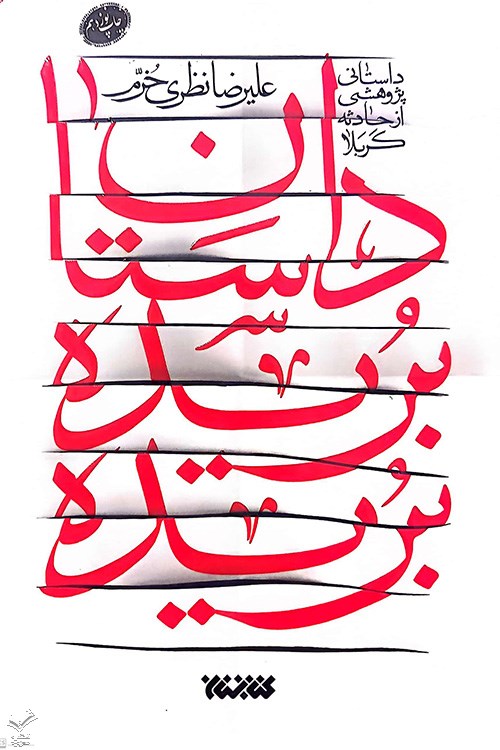 چاپ
علیرضا نظری خُرّم
داستانی
پژوهشی
از حادثه
کربلا
داستان
سر
بُریده
بُریده
کتابستان